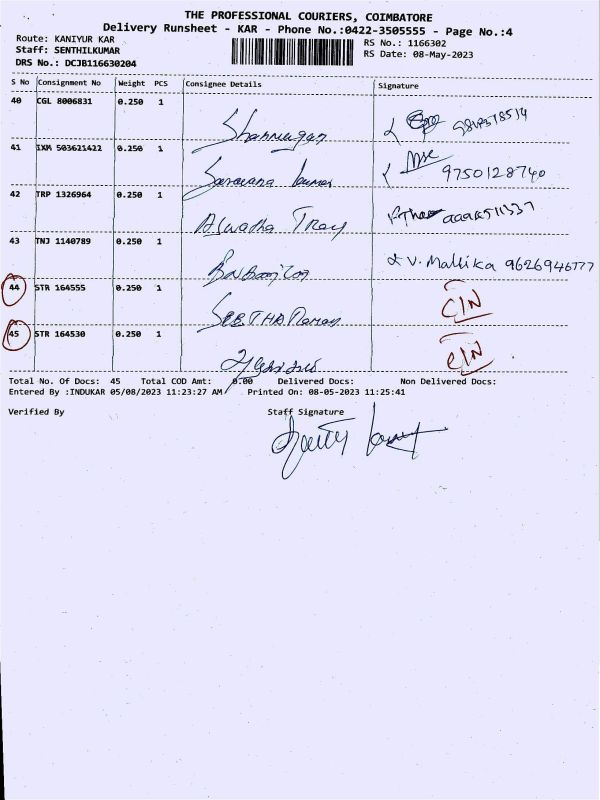 THE PROFESSIONAL COURIERS, COIMBATORE
Delivery Runsheet - KAR - Phone No.:0422-3505555 - Page No.:4
Route: KANIYUR KAR
RS No.: 1166302
Staff: SENTHILKUMAR
RS Date: 08-May-2023
DRS No.: DCJB116630204
S No Consignment No Weight PCS Consignee Details Signature
40 CGL 8006831 0.250 1
Shanmugan
41 IXM 503621422 0.250 1
Saravana kumar 9750128740
42 TRP 1326964 0.250 1
Aswatha
43 TNJ 1140789 0.250 1
V. Mallika 9626946777
44 STR 164555 0.250 1
C/N
45 STR 164530 0.250 1
C/N
Total No. Of Docs: 45 Total COD Amt: 0.00 Delivered Docs: Non Delivered Docs:
Entered By :INDUKAR 05/08/2023 11:23:27 AM Printed On: 08-05-2023 11:25:41
Verified By Staff Signature